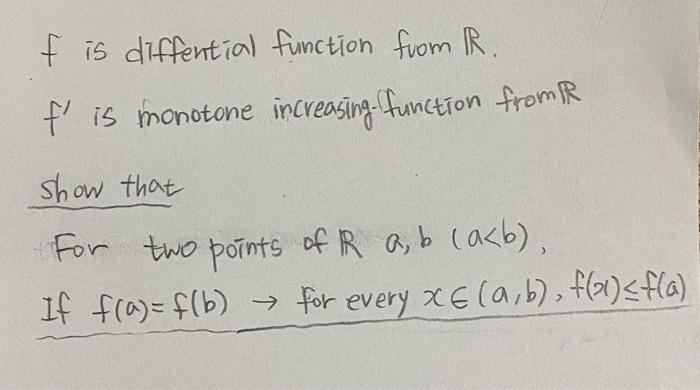 f is diffential function from ℝ.
f' is monotone increasing function from ℝ
show that
For two points of ℝ a, b (a<b),
If f(a)=f(b) → for every x∈(a,b), f(x)≤f(a)